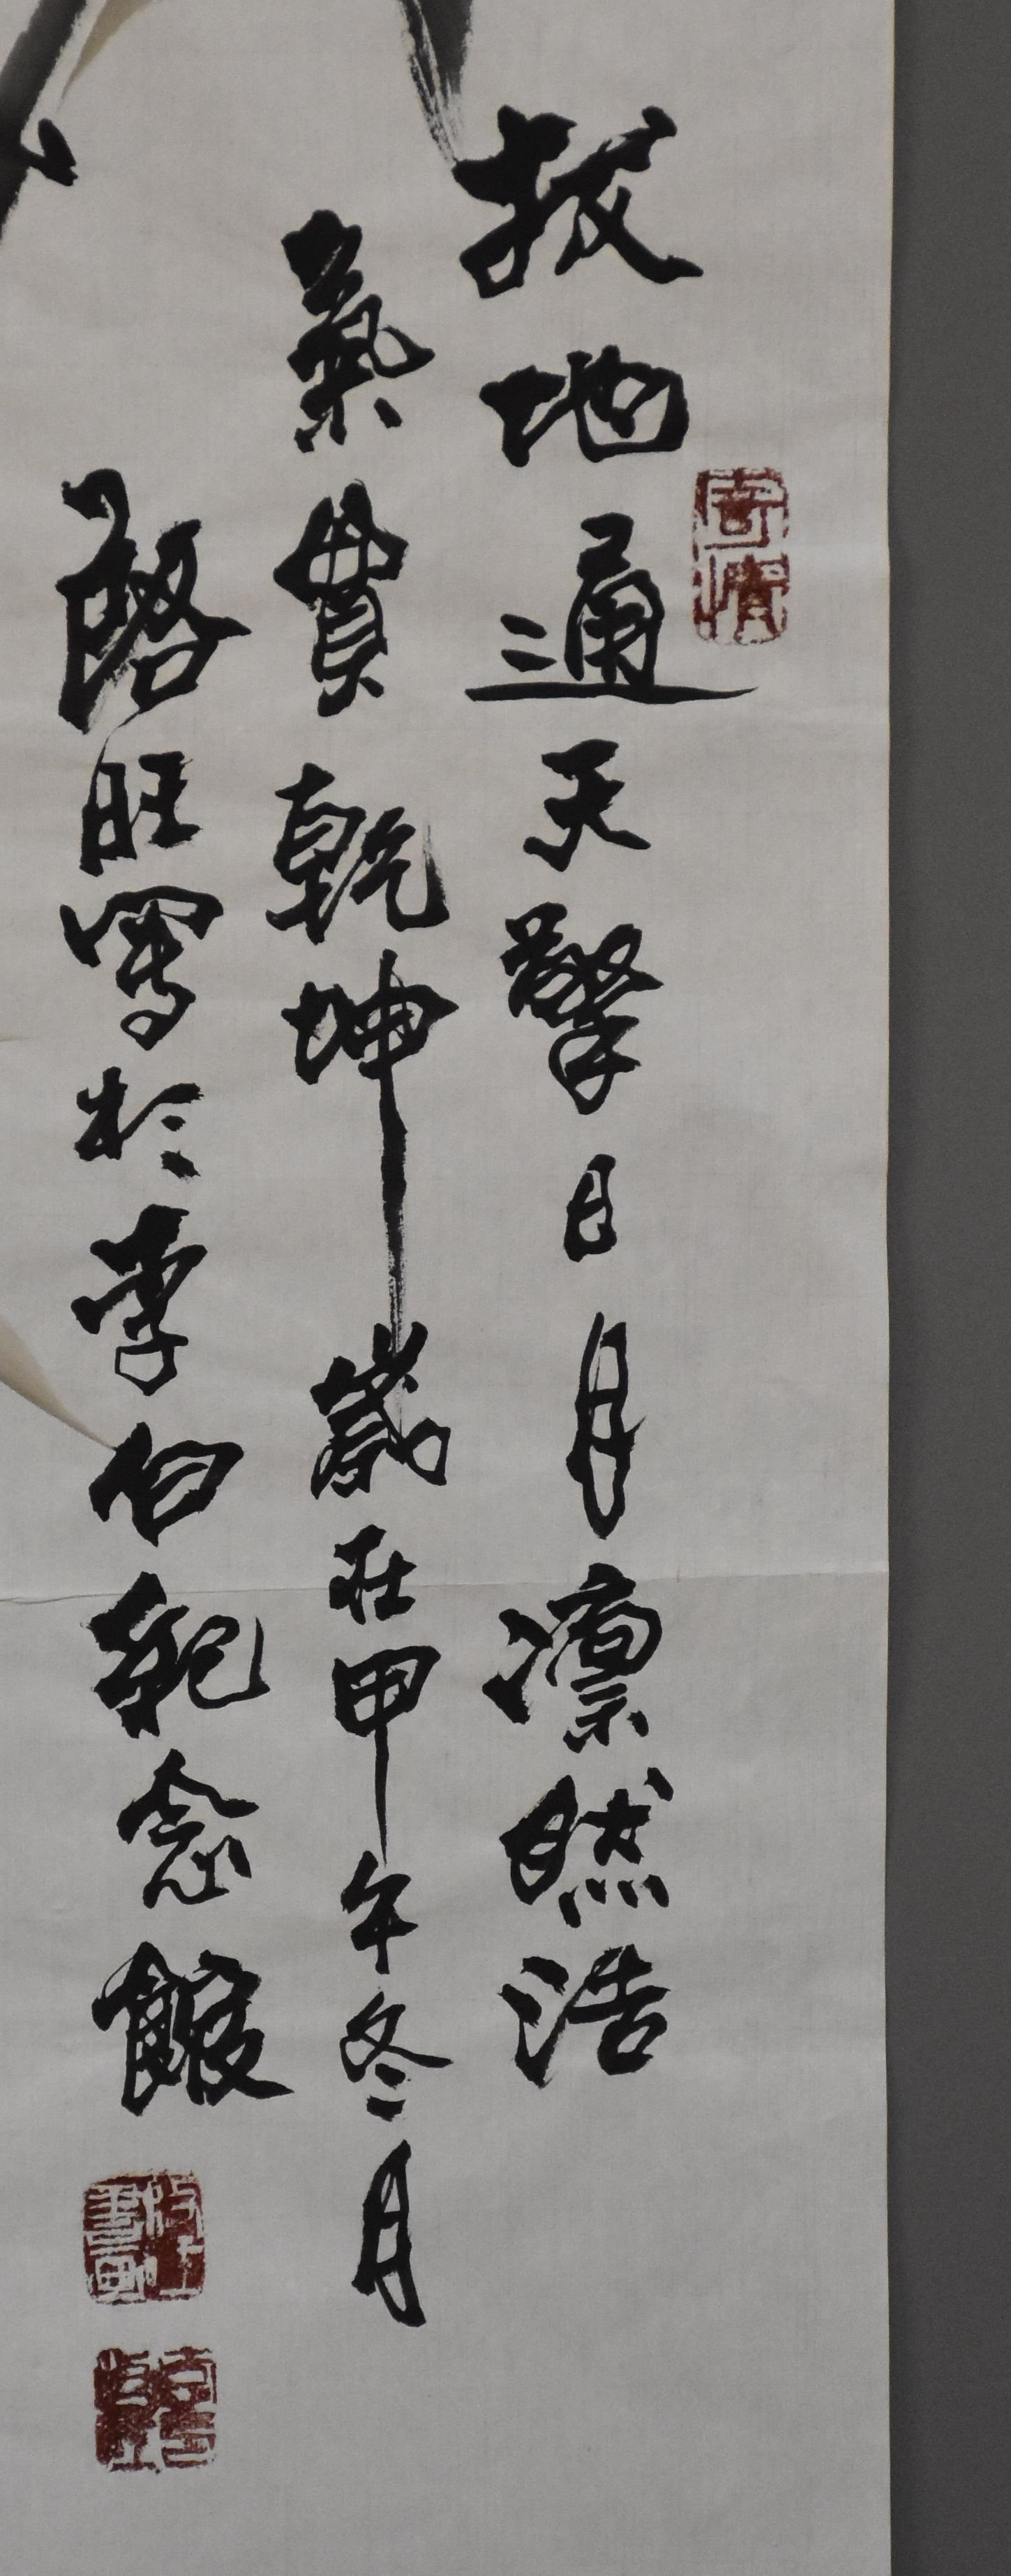 拔地通天擎日月凛然浩
氣貫乾坤歲在甲午冬月
啓旺寫於李白紀念館
寄情